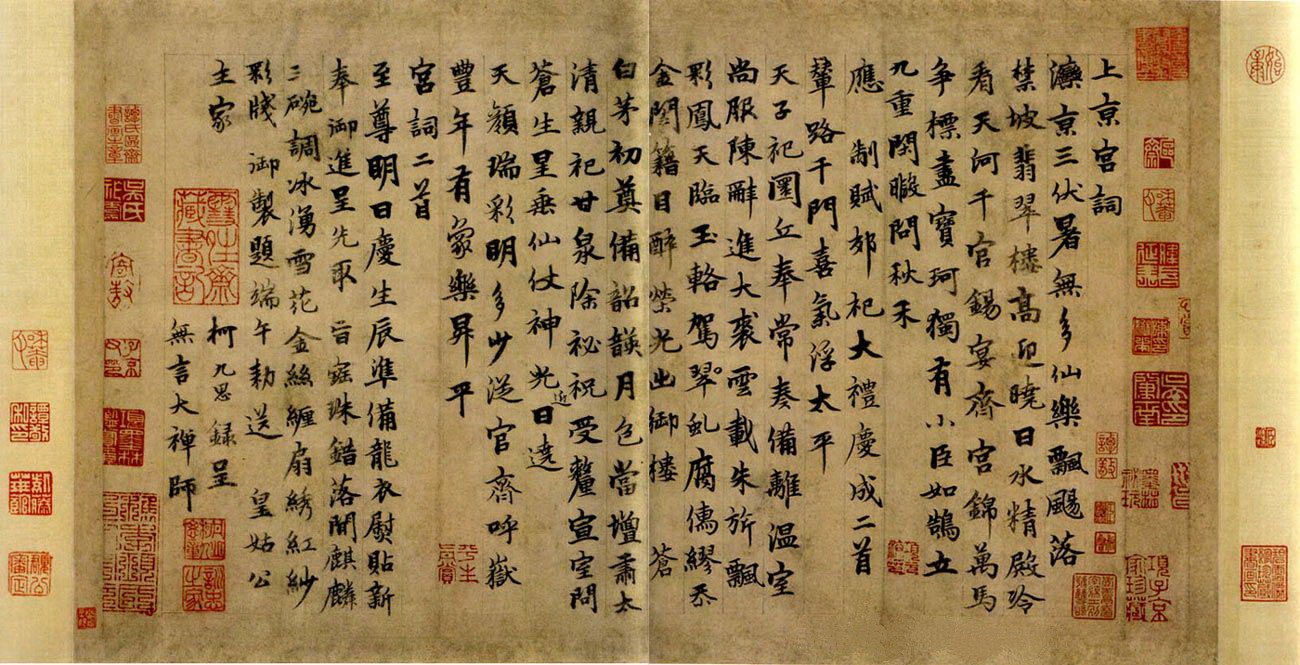 上亰宮詞
灤亰三伏暑無多仙樂飄颺落
禁坡翡翠樓高迎曉日水精殿冷
看天河千官錫宴齊宮錦萬馬
争標盡寶珂獨有小臣如鵠立
九重閑暇問秋禾
應 制賦郊祀大禮慶成二首
輦路千門喜氣浮太平
天子祀圜丘奉常奏備離温室
尚服陳辭進大裘雲載朱旂飄
彩鳳天臨玉輅駕翠虬腐儒繆忝
金閨籍目醉榮光出御樓 蒼
白茅初奠備韶韺月色當壇肅太
清親祀甘泉除祕祝受釐宣室問
蒼生星垂仙仗神光近日達
天顏瑞彩明多少從官齊呼嶽
豐年有象樂昇平
宮詞二首
至尊明日慶生辰準備龍衣熨貼新
奉御進呈先取 旨寶珠錯落閙麒麟
三碗調冰湧雪花金絲纏扇綉紅紗
彩牋 御製題端午勑送 皇姑公
主家
柯九思録呈
無言大禪師